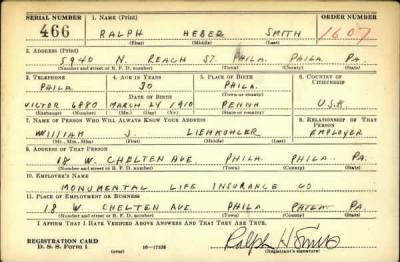 SERIAL NUMBER 1. NAME (Print) ORDER NUMBER
466 RALPH HEBER SMITH 1607
(First) (Middle) (Last)
2. ADDRESS (Print)
5940 N. REACH ST. PHILA. PHILA. PA.
(Number and street or R. F. D. number) (Town) (County) (State)
3. TELEPHONE 4. AGE IN YEARS 5. PLACE OF BIRTH 6. COUNTRY OF CITIZENSHIP
PHILA. 30 PHILA.
DATE OF BIRTH (Town or county)
VICTOR 6880 MARCH 24 1910 PENNA U.S.A.
(Exchange) (Number) (Mo.) (Day) (Yr.) (State or country)
7. NAME OF PERSON WHO WILL ALWAYS KNOW YOUR ADDRESS 8. RELATIONSHIP OF THAT PERSON
WILLIAM J. LIENKOHLER EMPLOYER
(Mr., Mrs., Miss) (First) (Middle) (Last)
9. ADDRESS OF THAT PERSON
18 W. CHELTEN AVE. PHILA. PHILA. PA.
(Number and street or R. F. D. number) (Town) (County) (State)
10. EMPLOYER'S NAME
MONUMENTAL LIFE INSURANCE CO
11. PLACE OF EMPLOYMENT OR BUSINESS
18 W. CHELTEN AVE. PHILA. PHILA. PA.
(Number and street or R. F. D. number) (Town) (County) (State)
I AFFIRM THAT I HAVE VERIFIED ABOVE ANSWERS AND THAT THEY ARE TRUE.
REGISTRATION CARD
D. S. S. Form 1 (over) 16—17105 Ralph H Smith